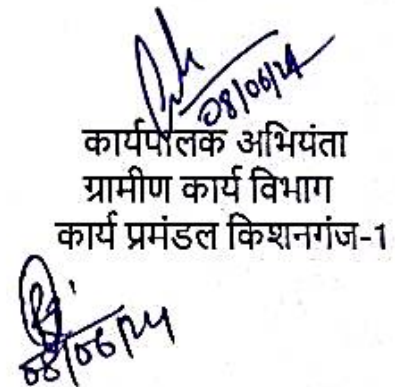 08/06/24
कार्यपालक अभियंता
ग्रामीण कार्य विभाग
कार्य प्रमंडल किशनगंज-1
08/06/24